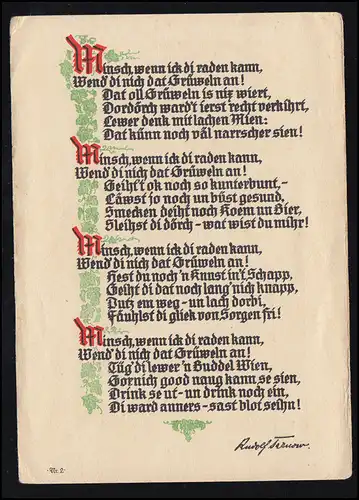 Minsch, wenn ick di raden kann,
Wend' di nich dat Grüweln an!
Dat oll Grüweln is nix wiert,
Dordörch ward't ierst recht verkihrt,
Lewer denk mit lachen Mien:
Dat künn noch väl narrscher sien!
Minsch, wenn ick di raden kann,
Wend' di nich dat Grüweln an!
Geiht't ok noch so kunterbunt,-
Läwst jo noch un büst gesund,
Smecken deiht noch Koem un Bier,
Sleihst di dörch - wat wist du mihr!
Minsch, wenn ick di raden kann,
Wend' di nich dat Grüweln an!
Hest du noch 'n Knust in't Schapp,
Geiht di dat noch lang' nich knapp,
Putz em weg - un lach dorbi,
Fäuhlst di gliek von Sorgen fri!
Minsch, wenn ick di raden kann,
Wend' di nich dat Grüweln an!
Tüg' di lewer 'n Buddel Wien,
Gornich good naug kann se sien,
Drink se ut - un drink noch ein,
Di ward anners - sast blot seihn!
Rudolf Tarnow
·Nr. 2·